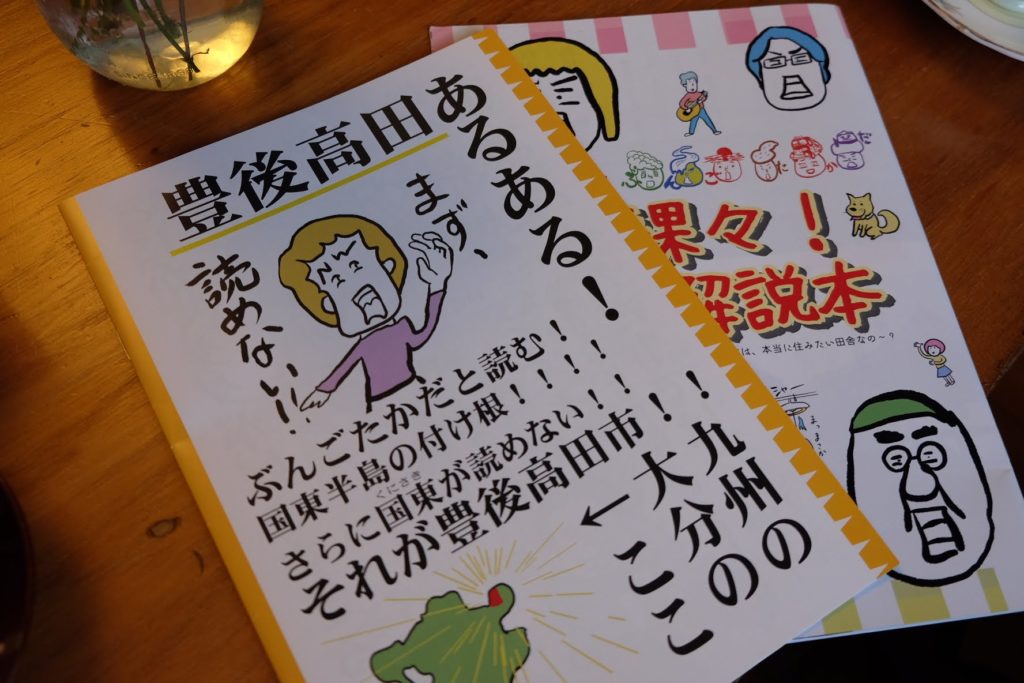 豊後高田あるある！
まず、
読めない!!
ぶんごたかだと読む！
国東半島の付け根！！！
さらに国東が読めない！！
くにさき
それが豊後高田市！！
九州の
大分の
ここ
←
ぶんごたかだ
裸々！
解説本
は、本当に住みたい田舎なの～？